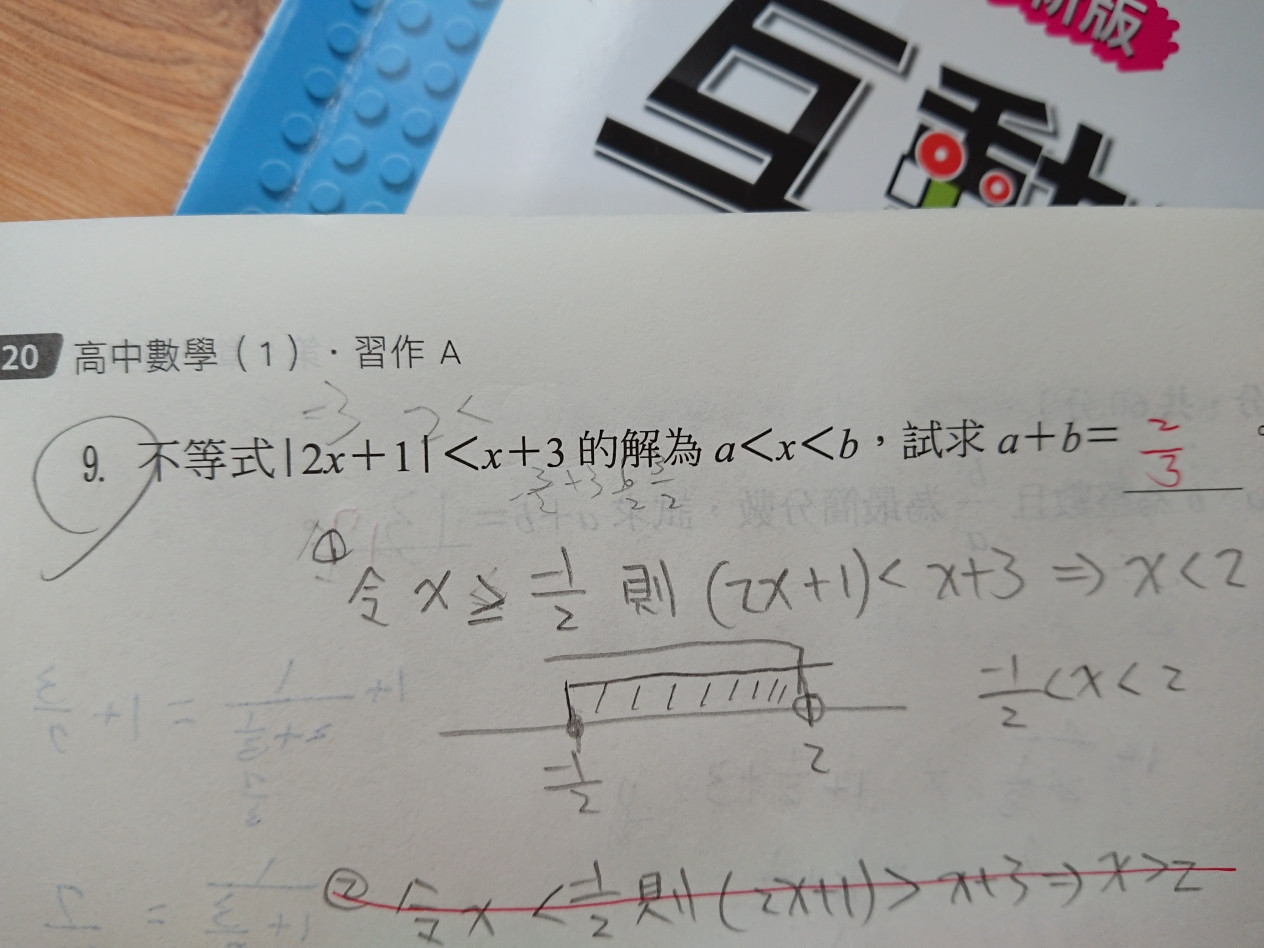 新版
互動
20 高中數學(1)·習作 A
=3 2<
9. 不等式|2x+1|<x+3 的解為 a<x<b,試求 a+b= 2/3 。
① 令 x ≧ -1/2 則 (2x+1)< x+3 ⇒ x<2
-1/2 <x<2
-1/2 2
② 令 x < -1/2 則 (2x+1)> x+3 ⇒ x>2